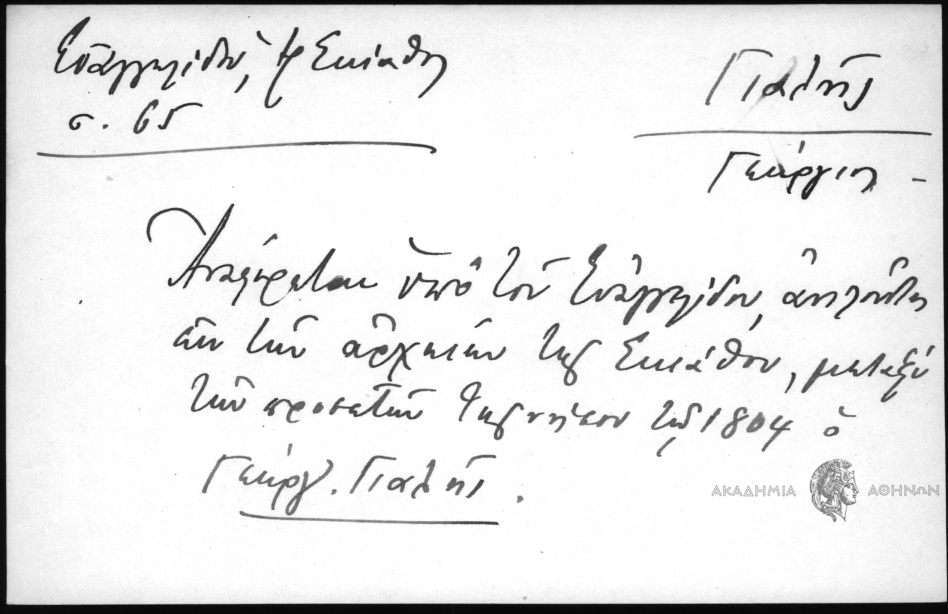 Εὐαγγελίδου, ἡ Σκίαθος
σ. 65
Γιαλῆς
Γεώργιος –
Ἀναφέρεται ὑπὸ τοῦ Εὐαγγελίδου, ἀντλοῦντος
ἐκ τῶν ἀρχείων τῆς Σκιάθου, μεταξὺ
τῶν προεστῶν τῆς νήσου τῷ 1804 ὁ
Γεώργ. Γιαλῆς.
ΑΚΑΔΗΜΙΑ ΑΘΗΝΩΝ